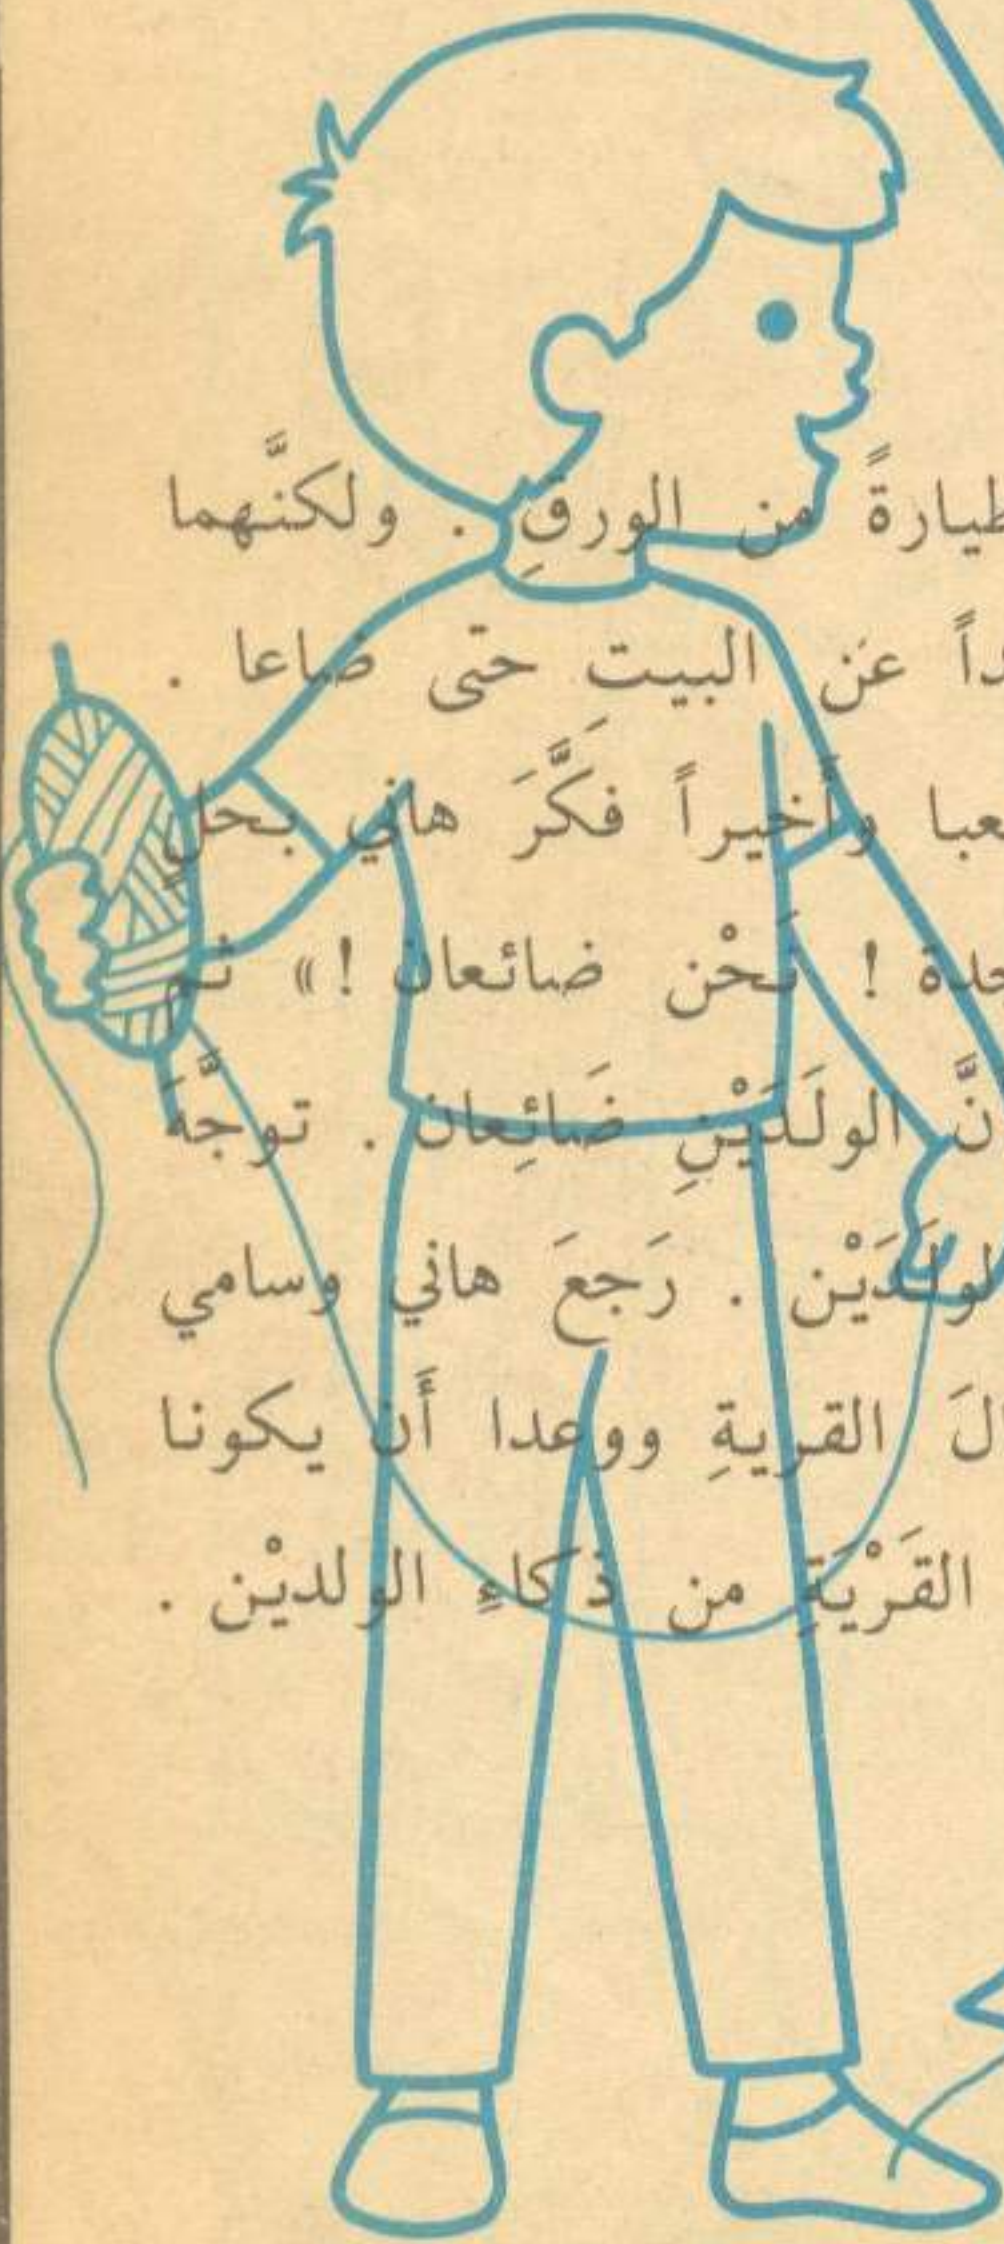 طيارةً من الورقِ . ولكنَّهما
عَن البيتِ حتى ضاعا .
وأَخيراً فكَّرَ هاني بحلٍ
! نَحْن ضائعان !» ثم
الولَدَيْنِ ضَائِعان . توجَّهَ
رَجعَ هاني وسامي
القريةِ ووعدا أَن يكونا
القَرْيَةِ من ذكاءِ الولديْن .